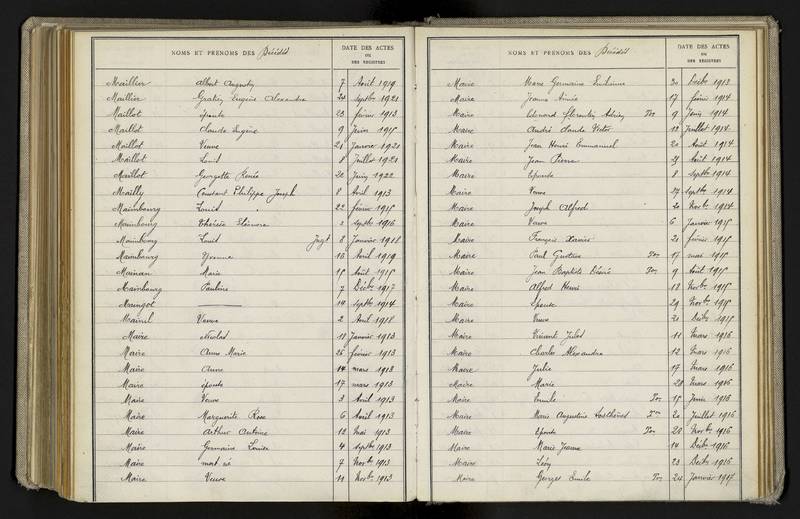 NOMS ET PRÉNOMS DES Décédés
DATE DES ACTES
OU
DES REGISTRES
Maillier Albert Augustin 7 Août 1919
Maillier Eugène Alexandre 24 Septbre 1921
Maillot épouse 23 février 1913
Maillot Claude Eugène 9 Juin 1915
Maillot Veuve 21 Janvier 1921
Maillot Louis 8 Juillet 1921
Maillot Georgette Renée 20 Juin 1922
Mailly Constant Philippe Joseph 8 Avril 1913
Maimbourg Louis 22 février 1915
Maimbourg Thérèse Eléonore 2 Septbre 1916
Maimbourg Louis Jugt 8 Janvier 1918
Maimbourg Yvonne 16 Avril 1919
Mainan Marie 15 Août 1915
Mainbourg Pauline 7 Décbre 1917
Maingot 14 Septbre 1914
Veuve 2 Avril 1918
Maire Nicolas 11 Janvier 1913
Maire Anne Marie 25 février 1913
Maire Anne 14 mars 1913
Maire épouse 17 mars 1913
Maire Veuve 3 Avril 1913
Maire Marguerite Rose 6 Avril 1913
Maire Arthur Antoine 12 Mai 1913
Maire Germaine Louise 4 Septbre 1913
Maire mort né 7 Novbre 1913
Maire Veuve 11 Novbre 1913
NOMS ET PRÉNOMS DES Décédés
DATE DES ACTES
OU
DES REGISTRES
Maire Marie Germaine 30 Décbre 1913
Maire Jeanne Aimée 17 février 1914
Maire Edouard Florentin Adrien Ton 9 Juin 1914
Maire André Claude Victor 13 Juillet 1914
Maire Jean Henri Emmanuel 20 Août 1914
Maire Jean Pierre 29 Août 1914
Maire Epouse 8 Septbre 1914
Maire Veuve 27 Septbre 1914
Maire Joseph Alfred 20 Novbre 1914
Maire Veuve 6 Janvier 1915
Maire François Xavier 21 février 1915
Maire Paul Gustave Ton 17 mai 1915
Maire Jean Baptiste Désiré Ton 9 Août 1915
Maire Alfred Henri 13 Novbre 1915
Maire Epouse 29 Novbre 1915
Maire Veuve 21 Décbre 1915
Maire Vincent Jules 11 Mars 1916
Maire Charles Alexandre 12 Mars 1916
Maire Julie 17 Mars 1916
Maire Marie 28 Mars 1916
Maire Emile Ton 15 Juin 1916
Maire Marie Augustine Ton 20 Juillet 1916
Maire Epouse Ton 28 Novbre 1916
Maire Marie Jeanne 14 Décbre 1916
Maire Léon 23 Décbre 1916
Maire Georges Emile Ton 24 Janvier 1917